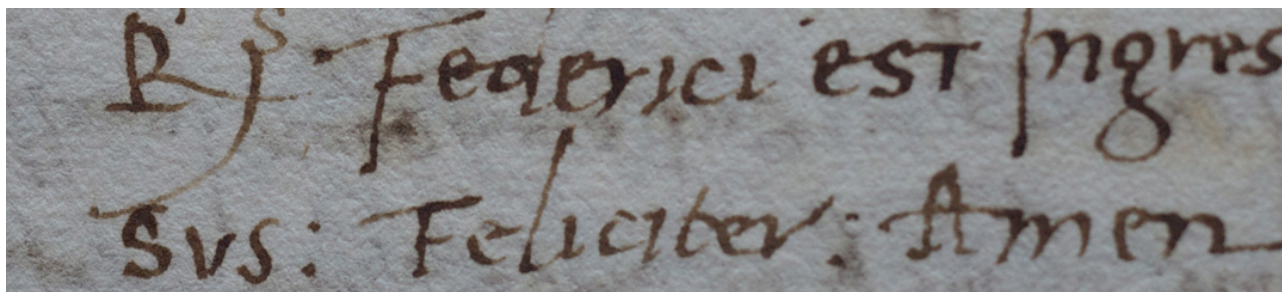 R. S. Federici est Ingres
sus: Feliciter: Amen